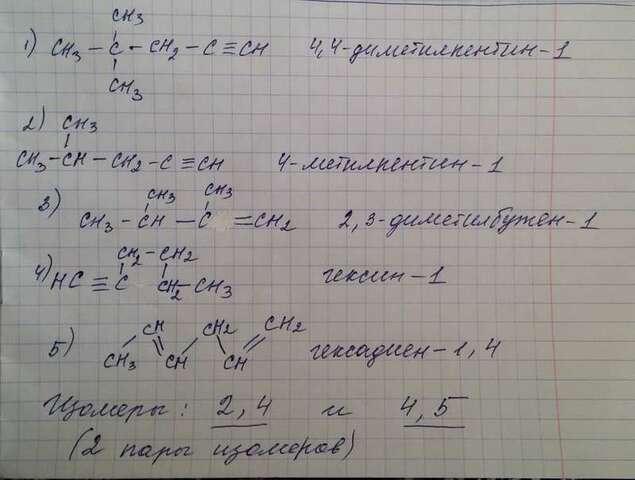 CH3
1) CH3 — C — CH2 — C ≡ CH 4,4-диметилпентин-1
CH3
2) CH3
CH3 — CH — CH2 — C ≡ CH 4-метилпентин-1
CH3 CH3
3) CH3 — CH — C = CH2 2,3-диметилбутен-1
CH2 — CH2
4) HC ≡ C CH2 — CH3 гексин-1
CH CH2 CH2
5) CH3 CH CH гексадиен-1,4
Изомеры: 2,4 и 4,5
(2 пары изомеров)